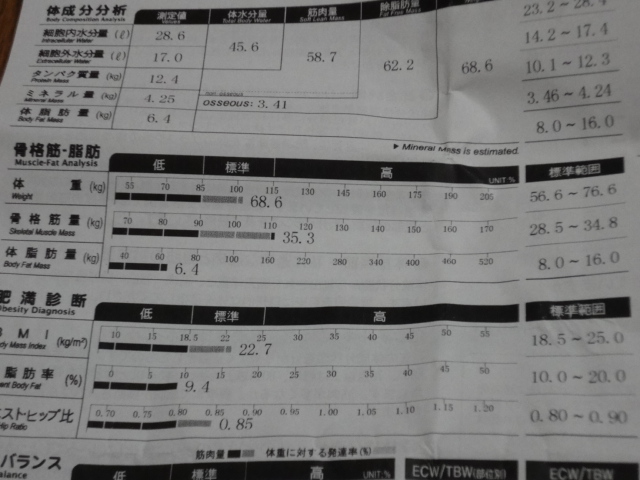 体成分分析 測定値 体水分量 筋肉量 除脂肪量
Body Composition Analysis Values Total Body Water Soft Lean Mass Fat Free Mass
細胞内水分量 (ℓ) 28.6 45.6 58.7 62.2 68.6 23.2 ~ 28.4
Intracellular Water
細胞外水分量 (ℓ) 17.0 14.2 ~ 17.4
Extracellular Water
タンパク質量 (kg) 12.4 10.1 ~ 12.3
Protein Mass
ミネラル量 (kg) 4.25 non-osseous 3.46 ~ 4.24
Mineral Mass osseous: 3.41
体脂肪量 (kg) 6.4 8.0 ~ 16.0
Body Fat Mass
▶ Mineral Mass is estimated.
骨格筋・脂肪 低 標準 高 標準範囲
Muscle-Fat Analysis UNIT:%
体重 (kg) 55 70 85 100 115 130 145 160 175 190 205
Weight 68.6 56.6 ~ 76.6
骨格筋量 (kg) 70 80 90 100 110 120 130 140 150 160 170
Skeletal Muscle Mass 35.3 28.5 ~ 34.8
体脂肪量 (kg) 40 60 80 100 160 220 280 340 400 460 520
Body Fat Mass 6.4 8.0 ~ 16.0
肥満診断 低 標準 高 標準範囲
besity Diagnosis
BMI (kg/m²) 10 15 18.5 22 25 30 35 40 45 50 55
dy Mass Index 22.7 18.5 ~ 25.0
脂肪率 (%) 0 5 10 15 20 25 30 35 40 45 50
ent Body Fat 9.4 10.0 ~ 20.0
エストヒップ比 0.70 0.75 0.80 0.85 0.90 0.95 1.00 1.05 1.10 1.15 1.20
Hip Ratio 0.85 0.80 ~ 0.90
筋肉量 体重に対する発達率(%)
バランス 低 標準 高 UNIT:% ECW/TBW(部位別) ECW/TBW
alance